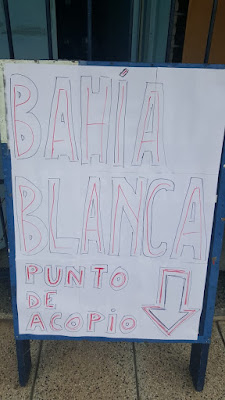 BAHÍA
BLANCA
PUNTO
DE
ACOPIO